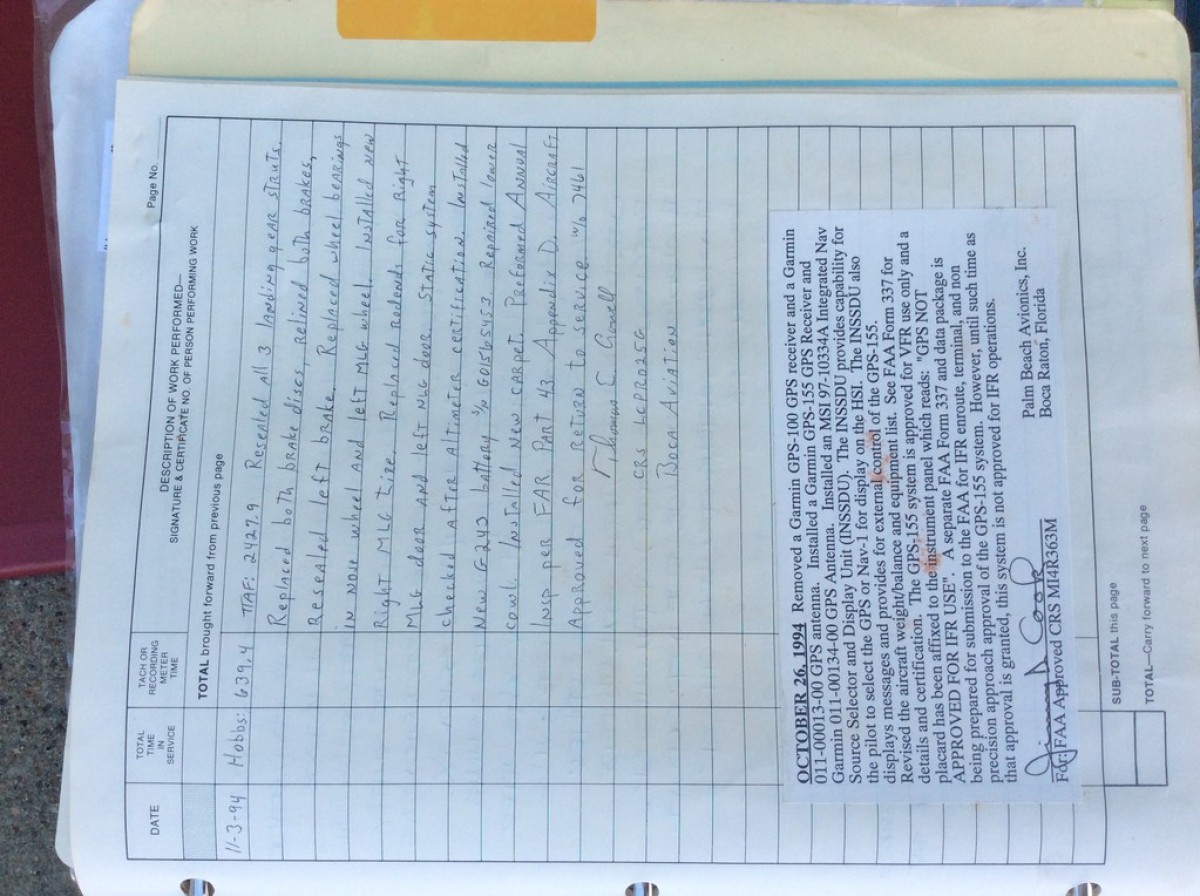 Page No.
DATE
TOTAL
TIME
IN
SERVICE
TACH OR
RECORDING
METER
TIME
DESCRIPTION OF WORK PERFORMED—
SIGNATURE & CERTIFICATE NO. OF PERSON PERFORMING WORK
TOTAL brought forward from previous page
11-3-94 Hobbs: 639.4 TTAF: 2427.9 Resealed All 3 landing gear struts.
Replaced both brake discs, relined both brakes,
Resealed left brake. Replaced wheel bearings
in nose wheel and left MLG wheel. Installed new
Right MLG tire. Replaced Rodends for Right
MLG door and left NLG door. Static system
checked after altimeter certification. Installed
New G243 battery S/N G01565453. Repaired lower
cowl. Installed New carpet. Preformed Annual
Insp per FAR Part 43 Appendix D. Aircraft
Approved for Return to service w/o 7461
CRS LCPR025G
Boca Aviation
OCTOBER 26, 1994 Removed a Garmin GPS-100 GPS receiver and a Garmin
011-00013-00 GPS antenna. Installed a Garmin GPS-155 GPS Receiver and
Garmin 011-00134-00 GPS Antenna. Installed an MSI 97-10334A Integrated Nav
Source Selector and Display Unit (INSSDU). The INSSDU provides capability for
the pilot to select the GPS or Nav-1 for display on the HSI. The INSSDU also
displays messages and provides for external control of the GPS-155.
Revised the aircraft weight/balance and equipment list. See FAA Form 337 for
details and certification. The GPS-155 system is approved for VFR use only and a
placard has been affixed to the instrument panel which reads: "GPS NOT
APPROVED FOR IFR USE". A separate FAA Form 337 and data package is
being prepared for submission to the FAA for IFR enroute, terminal, and non
precision approach approval of the GPS-155 system. However, until such time as
that approval is granted, this system is not approved for IFR operations.
Palm Beach Avionics, Inc.
For: FAA Approved CRS MI4R363M Boca Raton, Florida
SUB-TOTAL this page
TOTAL—Carry forward to next page